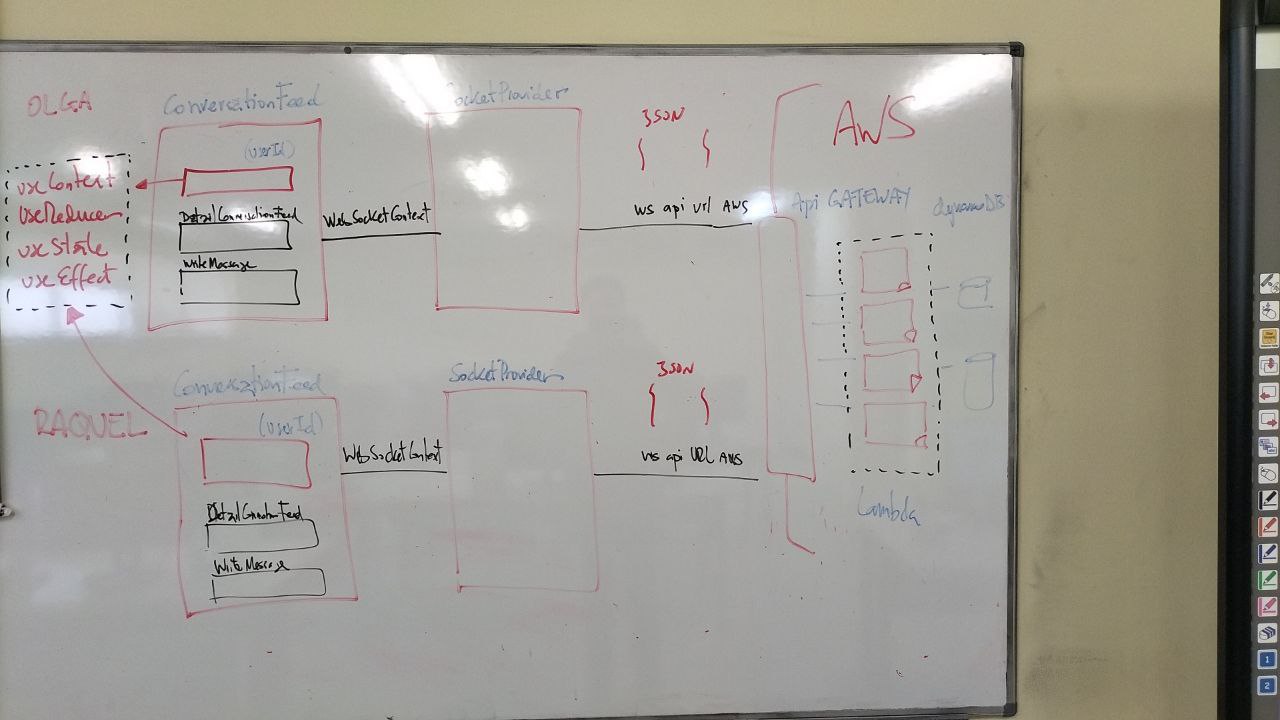 OLGA
ConversationFeed
(userId)
useContext
useReducer
useState
useEffect
DetailConversationFeed
WriteMessage
WebSocketContext
SocketProvider
JSON
{ }
ws api url AWS
AWS
Api GATEWAY
dynamoDB
Lambda
RAQUEL
ConversationFeed
(userId)
WriteMessage
WebSocketContext
SocketProvider
JSON
{ }
ws api URL AWS
1
2